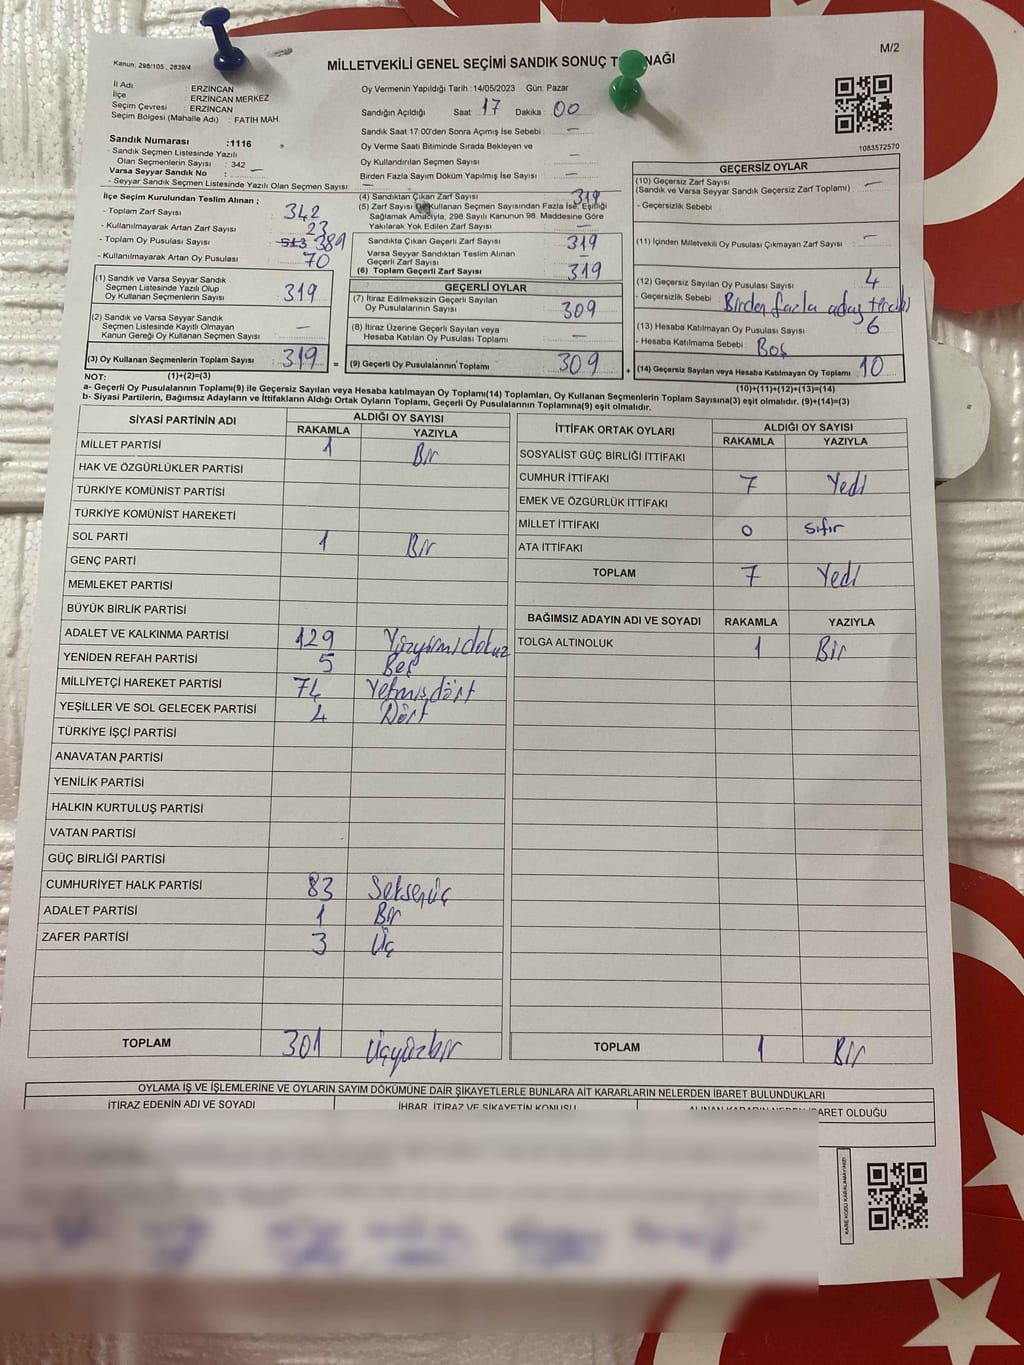 Kanun: 298/105, 2839/4
MİLLETVEKİLİ GENEL SEÇİMİ SANDIK SONUÇ T NAĞI
M/2
İl Adı : ERZİNCAN
İlçe : ERZİNCAN MERKEZ
Seçim Çevresi : ERZİNCAN
Seçim Bölgesi (Mahalle Adı) : FATİH MAH.
Sandık Numarası :1116
- Sandık Seçmen Listesinde Yazılı
Olan Seçmenlerin Sayısı : 342
Varsa Seyyar Sandık No : —
- Seyyar Sandık Seçmen Listesinde Yazılı Olan Seçmen Sayısı: —
Oy Vermenin Yapıldığı Tarih :14/05/2023 Gün: Pazar
Sandığın Açıldığı Saat 17 Dakika : 00
Sandık Saat 17:00'den Sonra Açılmış İse Sebebi : —
Oy Verme Saati Bitiminde Sırada Bekleyen ve
Oy Kullandırılan Seçmen Sayısı —
Birden Fazla Sayım Döküm Yapılmış İse Sayısı : —
1083572570
İlçe Seçim Kurulundan Teslim Alınan ;
- Toplam Zarf Sayısı : 342
- Kullanılmayarak Artan Zarf Sayısı : 23
- Toplam Oy Pusulası Sayısı : 389
- Kullanılmayarak Artan Oy Pusulası : 70
(1) Sandık ve Varsa Seyyar Sandık
Seçmen Listesinde Yazılı Olup
Oy Kullanan Seçmenlerin Sayısı : 319
(2) Sandık ve Varsa Seyyar Sandık
Seçmen Listesinde Kayıtlı Olmayan
Kanun Gereği Oy Kullanan Seçmen Sayısı : —
(3) Oy Kullanan Seçmenlerin Toplam Sayısı : 319 =
(4) Sandıktan Çıkan Zarf Sayısı 319
(5) Zarf Sayısı Oy Kullanan Seçmen Sayısından Fazla İse, Eşitliği
Sağlamak Amacıyla, 298 Sayılı Kanunun 98. Maddesine Göre
Yakılarak Yok Edilen Zarf Sayısı : —
Sandıkta Çıkan Geçerli Zarf Sayısı : 319
Varsa Seyyar Sandıktan Teslim Alınan
Geçerli Zarf Sayısı : —
(6) Toplam Geçerli Zarf Sayısı : 319
GEÇERLİ OYLAR
(7) İtiraz Edilmeksizin Geçerli Sayılan
Oy Pusulalarının Sayısı : 309
(8) İtiraz Üzerine Geçerli Sayılan veya
Hesaba Katılan Oy Pusulası Toplamı : —
(9) Geçerli Oy Pusulalarının Toplamı : 309 +
GEÇERSİZ OYLAR
(10) Geçersiz Zarf Sayısı
(Sandık ve Varsa Seyyar Sandık Geçersiz Zarf Toplamı) : —
- Geçersizlik Sebebi :
(11) İçinden Milletvekili Oy Pusulası Çıkmayan Zarf Sayısı : —
(12) Geçersiz Sayılan Oy Pusulası Sayısı : 4
- Geçersizlik Sebebi : Birden fazla aday tercihi
(13) Hesaba Katılmayan Oy Pusulası Sayısı : 6
- Hesaba Katılmama Sebebi : Boş
(14) Geçersiz Sayılan veya Hesaba Katılmayan Oy Toplamı : 10
NOT: (1)+(2)=(3) (10)+(11)+(12)+(13)=(14)
a- Geçerli Oy Pusulalarının Toplamı(9) ile Geçersiz Sayılan veya Hesaba katılmayan Oy Toplamı(14) Toplamları, Oy Kullanan Seçmenlerin Toplam Sayısına(3) eşit olmalıdır. (9)+(14)=(3)
b- Siyasi Partilerin, Bağımsız Adayların ve İttifakların Aldığı Ortak Oyların Toplamı, Geçerli Oy Pusulalarının Toplamına(9) eşit olmalıdır.
SİYASİ PARTİNİN ADI ALDIĞI OY SAYISI
RAKAMLA YAZIYLA
MİLLET PARTİSİ 1 Bir
HAK VE ÖZGÜRLÜKLER PARTİSİ
TÜRKİYE KOMÜNİST PARTİSİ
TÜRKİYE KOMÜNİST HAREKETİ
SOL PARTİ 1 Bir
GENÇ PARTİ
MEMLEKET PARTİSİ
BÜYÜK BİRLİK PARTİSİ
ADALET VE KALKINMA PARTİSİ 129 Yüzyirmidokuz
YENİDEN REFAH PARTİSİ 5 Beş
MİLLİYETÇİ HAREKET PARTİSİ 74 Yetmişdört
YEŞİLLER VE SOL GELECEK PARTİSİ 4 Dört
TÜRKİYE İŞÇİ PARTİSİ
ANAVATAN PARTİSİ
YENİLİK PARTİSİ
HALKIN KURTULUŞ PARTİSİ
VATAN PARTİSİ
GÜÇ BİRLİĞİ PARTİSİ
CUMHURİYET HALK PARTİSİ 83 Seksenüç
ADALET PARTİSİ 1 Bir
ZAFER PARTİSİ 3 Üç
TOPLAM 301 Üçyüzbir
İTTİFAK ORTAK OYLARI ALDIĞI OY SAYISI
RAKAMLA YAZIYLA
SOSYALİST GÜÇ BİRLİĞİ İTTİFAKI
CUMHUR İTTİFAKI 7 Yedi
EMEK VE ÖZGÜRLÜK İTTİFAKI
MİLLET İTTİFAKI 0 Sıfır
ATA İTTİFAKI
TOPLAM 7 Yedi
BAĞIMSIZ ADAYIN ADI VE SOYADI RAKAMLA YAZIYLA
TOLGA ALTINOLUK 1 Bir
TOPLAM 1 Bir
OYLAMA İŞ VE İŞLEMLERİNE VE OYLARIN SAYIM DÖKÜMÜNE DAİR ŞİKAYETLERLE BUNLARA AİT KARARLARIN NELERDEN İBARET BULUNDUKLARI
İTİRAZ EDENİN ADI VE SOYADI İHBAR, İTİRAZ VE ŞİKAYETİN KONUSU ALINAN KARARIN NEDEN İBARET OLDUĞU
KARE KODU KARALAMAYINIZ!